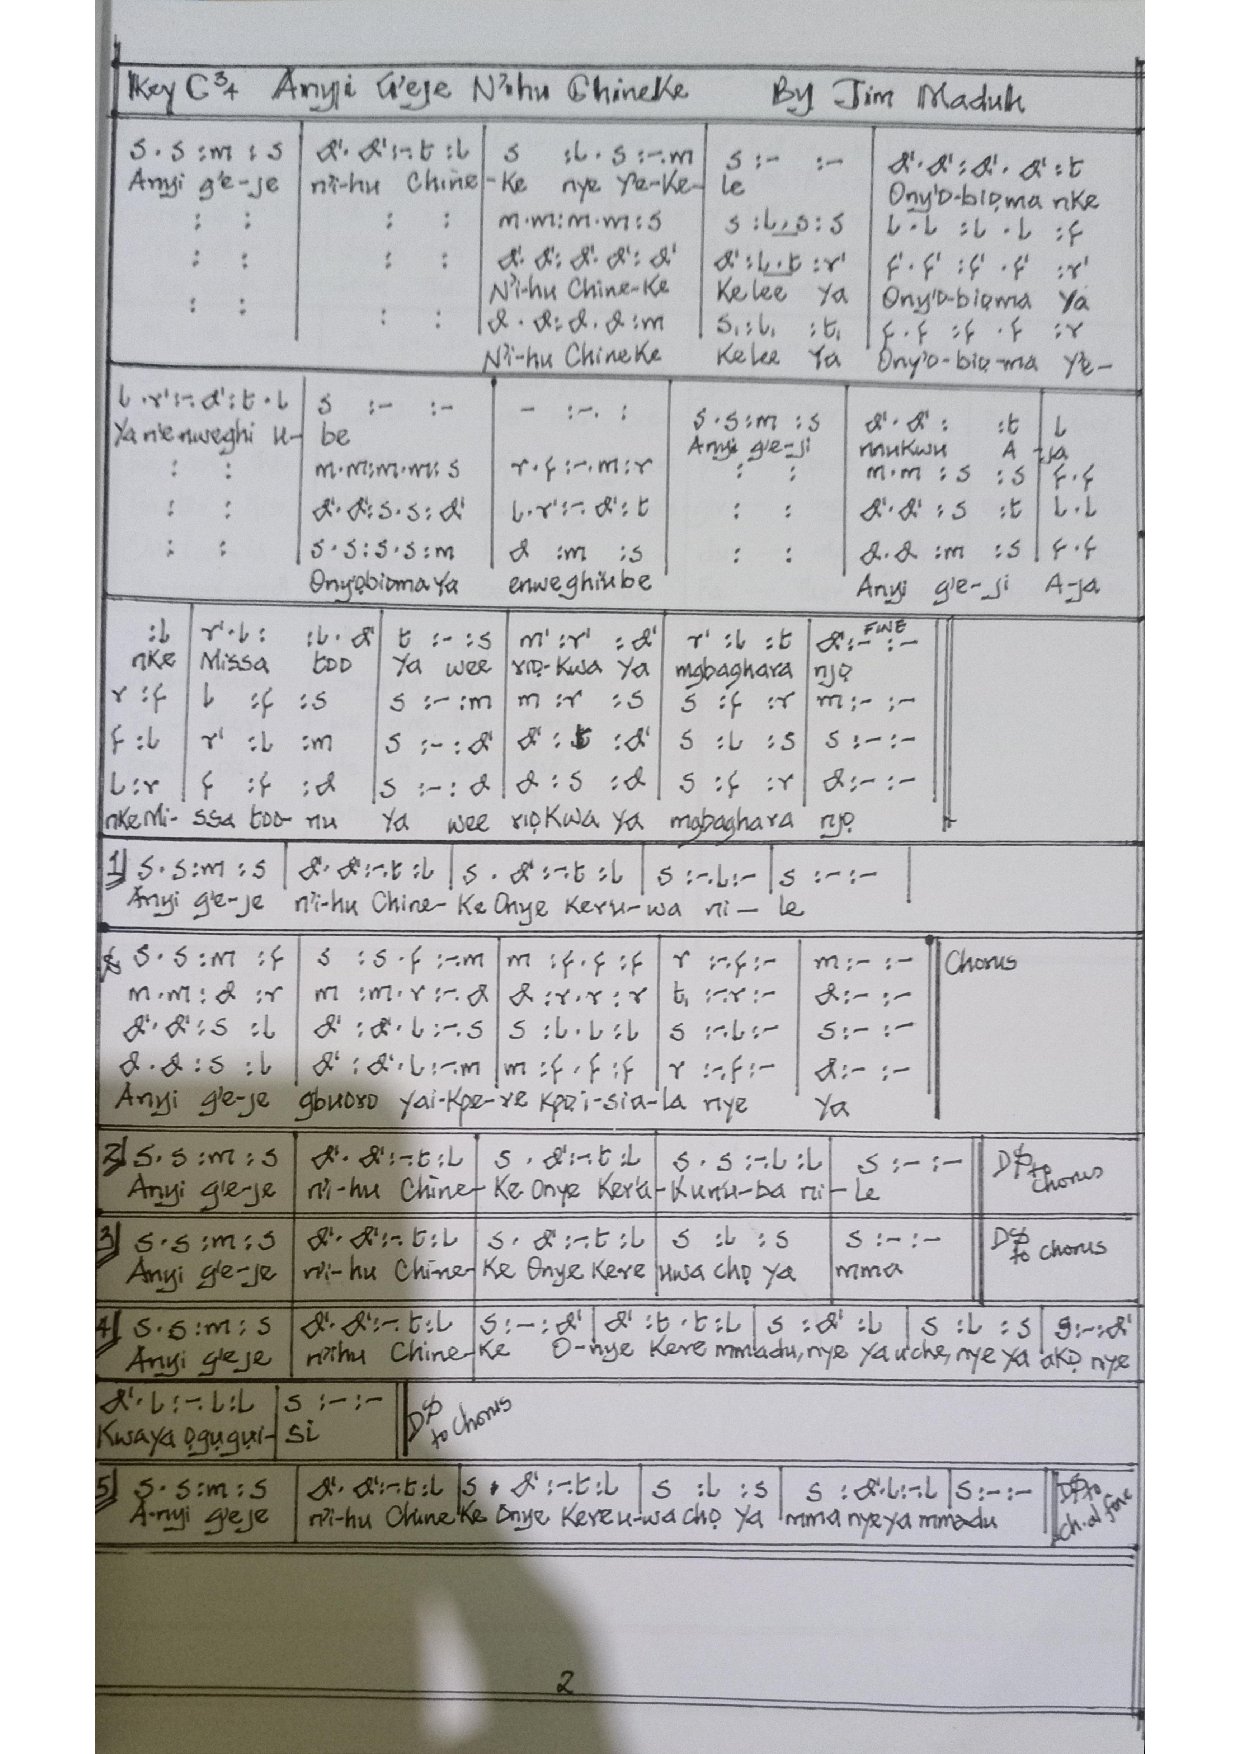 Key C 3/4 Anyi G'eje N'ihu Chineke By Jim Maduh
s . s : m : s | d' . d' : - . t : l | s : l . s : - . m | s : - : - | d' . d' : d' . d' : t
Anyi g'e-je ni-hu Chine-Ke nye Y'e-Ke-le Ony'O-biọma nke
: : | : : | m . m : m . m : s | s : l . s : s | l . l : l . l : f
: : | : : | d' . d' : d' . d' : d' | d' : l . t : r' | f' . f' : f' . f' : r'
N'i-hu Chine-Ke Kelee Ya Ony'O-biọma Ya
: : | : : | d . d : d . d : m | s₁ : l₁ : t₁ | f . f : f . f : r
N'i-hu ChineKe Kelee Ya Ony'O-biọ-ma Y'e-
l . r' : - . d' : t . l | s : - : - | - : - . : | s . s : m : s | d' . d' : : t | l
Ya n'enweghi u-be Anyi g'e-ji nnukwu A-ja
: : | m . m : m . m : s | r . f : - . m : r | : : | m . m : s : s | f . f
: : | d' . d' : s . s : d' | l . r' : - . d' : t | : : | d' . d' : s : t | l . l
: : | s . s : s . s : m | d : m : s | : : | d . d : m : s | f . f
Onyọbiọma Ya enweghiube Anyi g'e-ji A-ja
: l | r' . l : : l . d' | t : - : s | m' : r' : d' | r' : l : t | d' : - : - FINE
nke Missa too Ya wee rịọ-Kwa Ya mgbaghara njọ
r : f | l : f : s | s : - : m | m : r : s | s : f : r | m : - : -
f : l | r' : l : m | s : - : d' | d' : t : d' | s : l : s | s : - : -
l : r | f : f : d | s : - : d | d : s : d | s : f : r | d : - : -
nke Mi-ssa too-nu Ya wee rịọ Kwa Ya mgbaghara njọ
1) s . s : m : s | d' . d' : - . t : l | s . d' : - . t : l | s : - . l : - | s : - : - |
Anyi g'e-je n'i-hu Chine-Ke Onye Keru-wa ni-le
𝄋 s . s : m : f | s : s . f : - . m | m : f . f : f | r : - . f : - | m : - : - || Chorus
m . m : d : r | m : m . r : - . d | d : r . r : r | t₁ : - . r : - | d : - : -
d' . d' : s : l | d' : d' . l : - . s | s : l . l : l | s : - . l : - | s : - : -
d . d : s : l | d' : d' . l : - . m | m : f . f : f | r : - . f : - | d : - : -
Anyi g'e-je gbuoro yai-Kpe-re kpọi-sia-la nye Ya
2) s . s : m : s | d' . d' : - . t : l | s . d' : - . t : l | s . s : - . l : l | s : - : - || D𝄋 to chorus
Anyi g'e-je n'i-hu Chine-Ke Onye Ker'a-Kunu-ba ni-le
3) s . s : m : s | d' . d' : - . t : l | s . d' : - . t : l | s : l : s | s : - : - || D𝄋 to chorus
Anyi g'e-je n'i-hu Chine-Ke Onye Kere uwa chọ ya mma
4) s . s : m : s | d' . d' : - . t : l | s : - : d' | d' : t . t : l | s : d' : l | s : l : s | s : - : d'
Anyi g'eje n'ihu Chine-Ke O-nye Kere mmadu, nye ya uche, nye ya akọ nye
d' . l : - . l : l | s : - : - || D𝄋 to chorus
Kwaya ọgụgụi-si
5) s . s : m : s | d' . d' : - . t : l | s . d' : - . t : l | s : l : s | s : d' . l : - . l | s : - : - || D𝄋 to ch. al fine
A-nyi g'eje n'i-hu Chine Ke Onye Kere u-wa chọ Ya mma nye ya mmadu
2